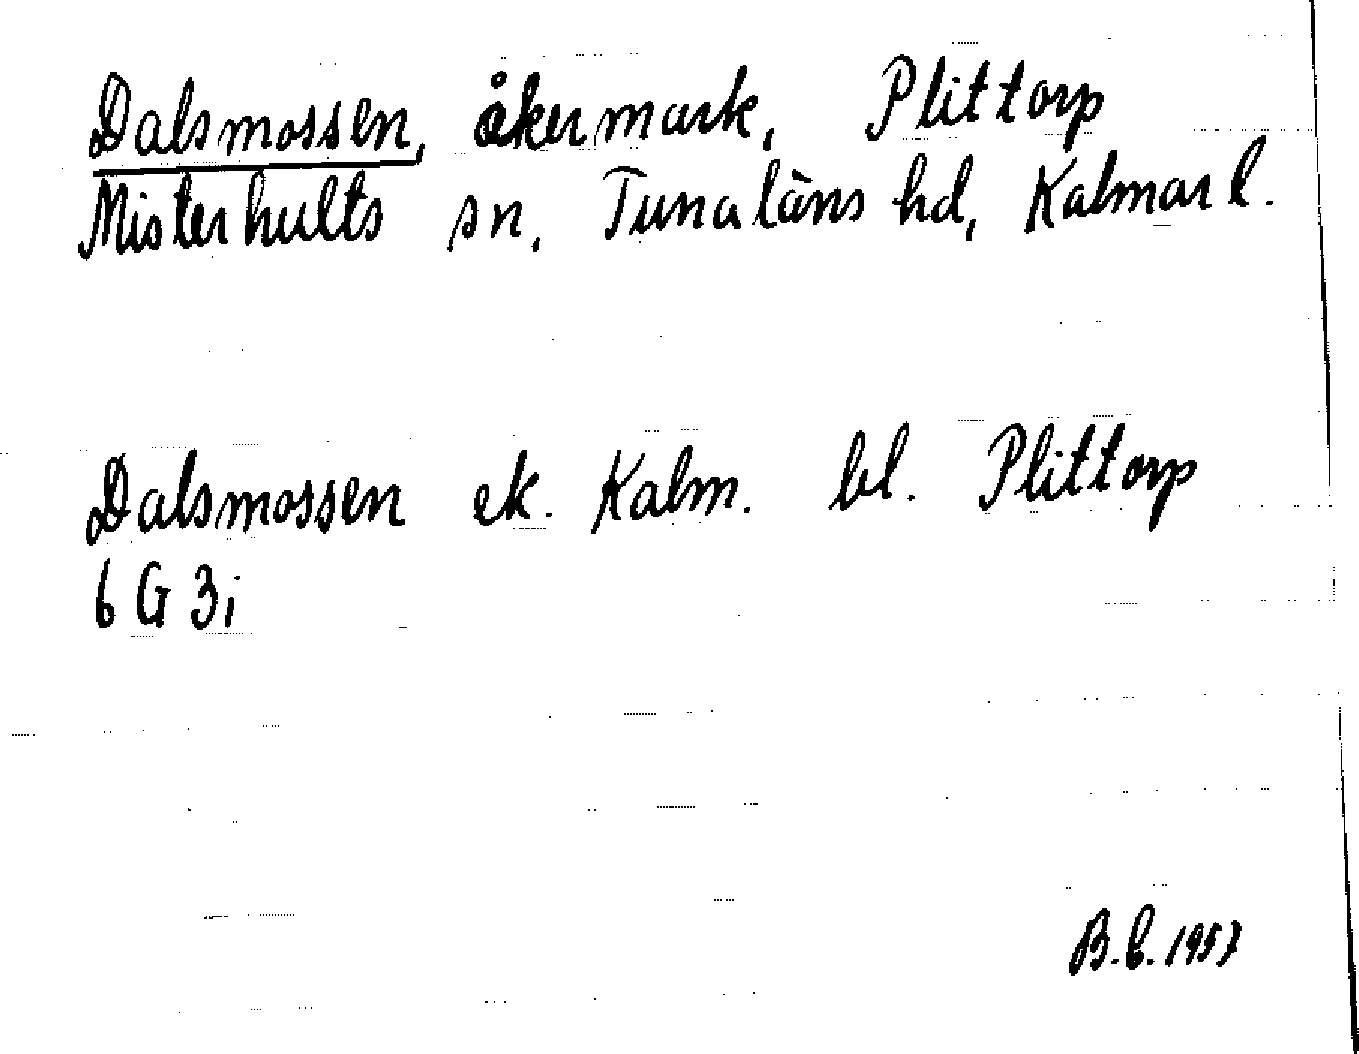 Dalsmossen, åkermark, Plittorp
Misterhults sn, Tunaläns hd, Kalmar l.
Dalsmossen ek. Kalm. bl. Plittorp
6 G 3i
B.C. 1957